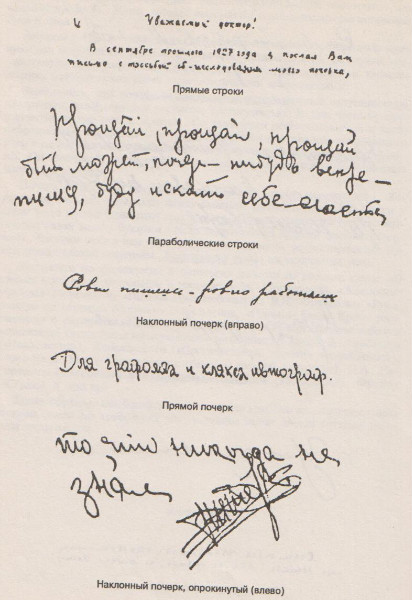 Уважаемый доктор!
В сентябре прошлого 1927 года я послал Вам
письмо с просьбой об исследовании моего почерка,
Прямые строки
Прощай, прощай, прощай
быть может, когда-нибудь встре-
тимся, буду искать себе счастья
Параболические строки
Ровно пишешь - ровно работаешь
Наклонный почерк (вправо)
Для графолога и клякса автограф.
Прямой почерк
то это никогда не
знала
Наклонный почерк, опрокинутый (влево)